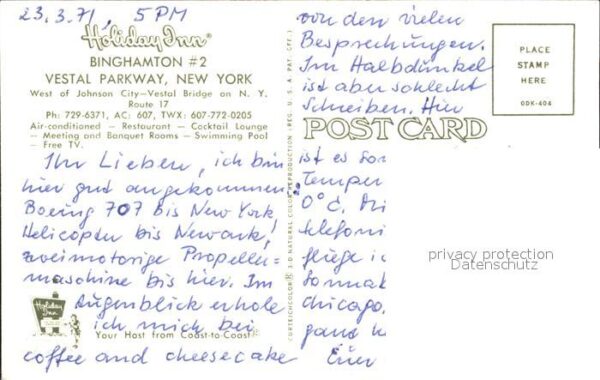 23.3.71, 5 PM
Holiday Inn®
BINGHAMTON #2
VESTAL PARKWAY, NEW YORK
West of Johnson City—Vestal Bridge on N. Y.
Route 17
Ph: 729-6371, AC: 607, TWX: 607-772-0205
Air-conditioned — Restaurant — Cocktail Lounge
— Meeting and Banquet Rooms — Swimming Pool
— Free TV.
Ihr Lieben, ich bin
hier gut angekommen
Boeing 707 bis New York,
Helicopter bis Newark,
zweimotorige Propeller-
maschine bis hier. Im
Augenblick erhole
ich mich bei
coffee and cheesecake
Holiday Inn
Your Host from Coast-to-Coast
CURTEICHCOLOR® 3-D NATURAL COLOR REPRODUCTION (REG. U. S. A. PAT. OFF.)
von den vielen
Besprechungen.
Im Halbdunkel
ist aber schlecht
Schreiben. Hier
POST CARD
ist es
Temper
0°C.
telefoni
fliege ic
Chicago.
ganz
Euer
PLACE
STAMP
HERE
ODK-404
privacy protection
Datenschutz